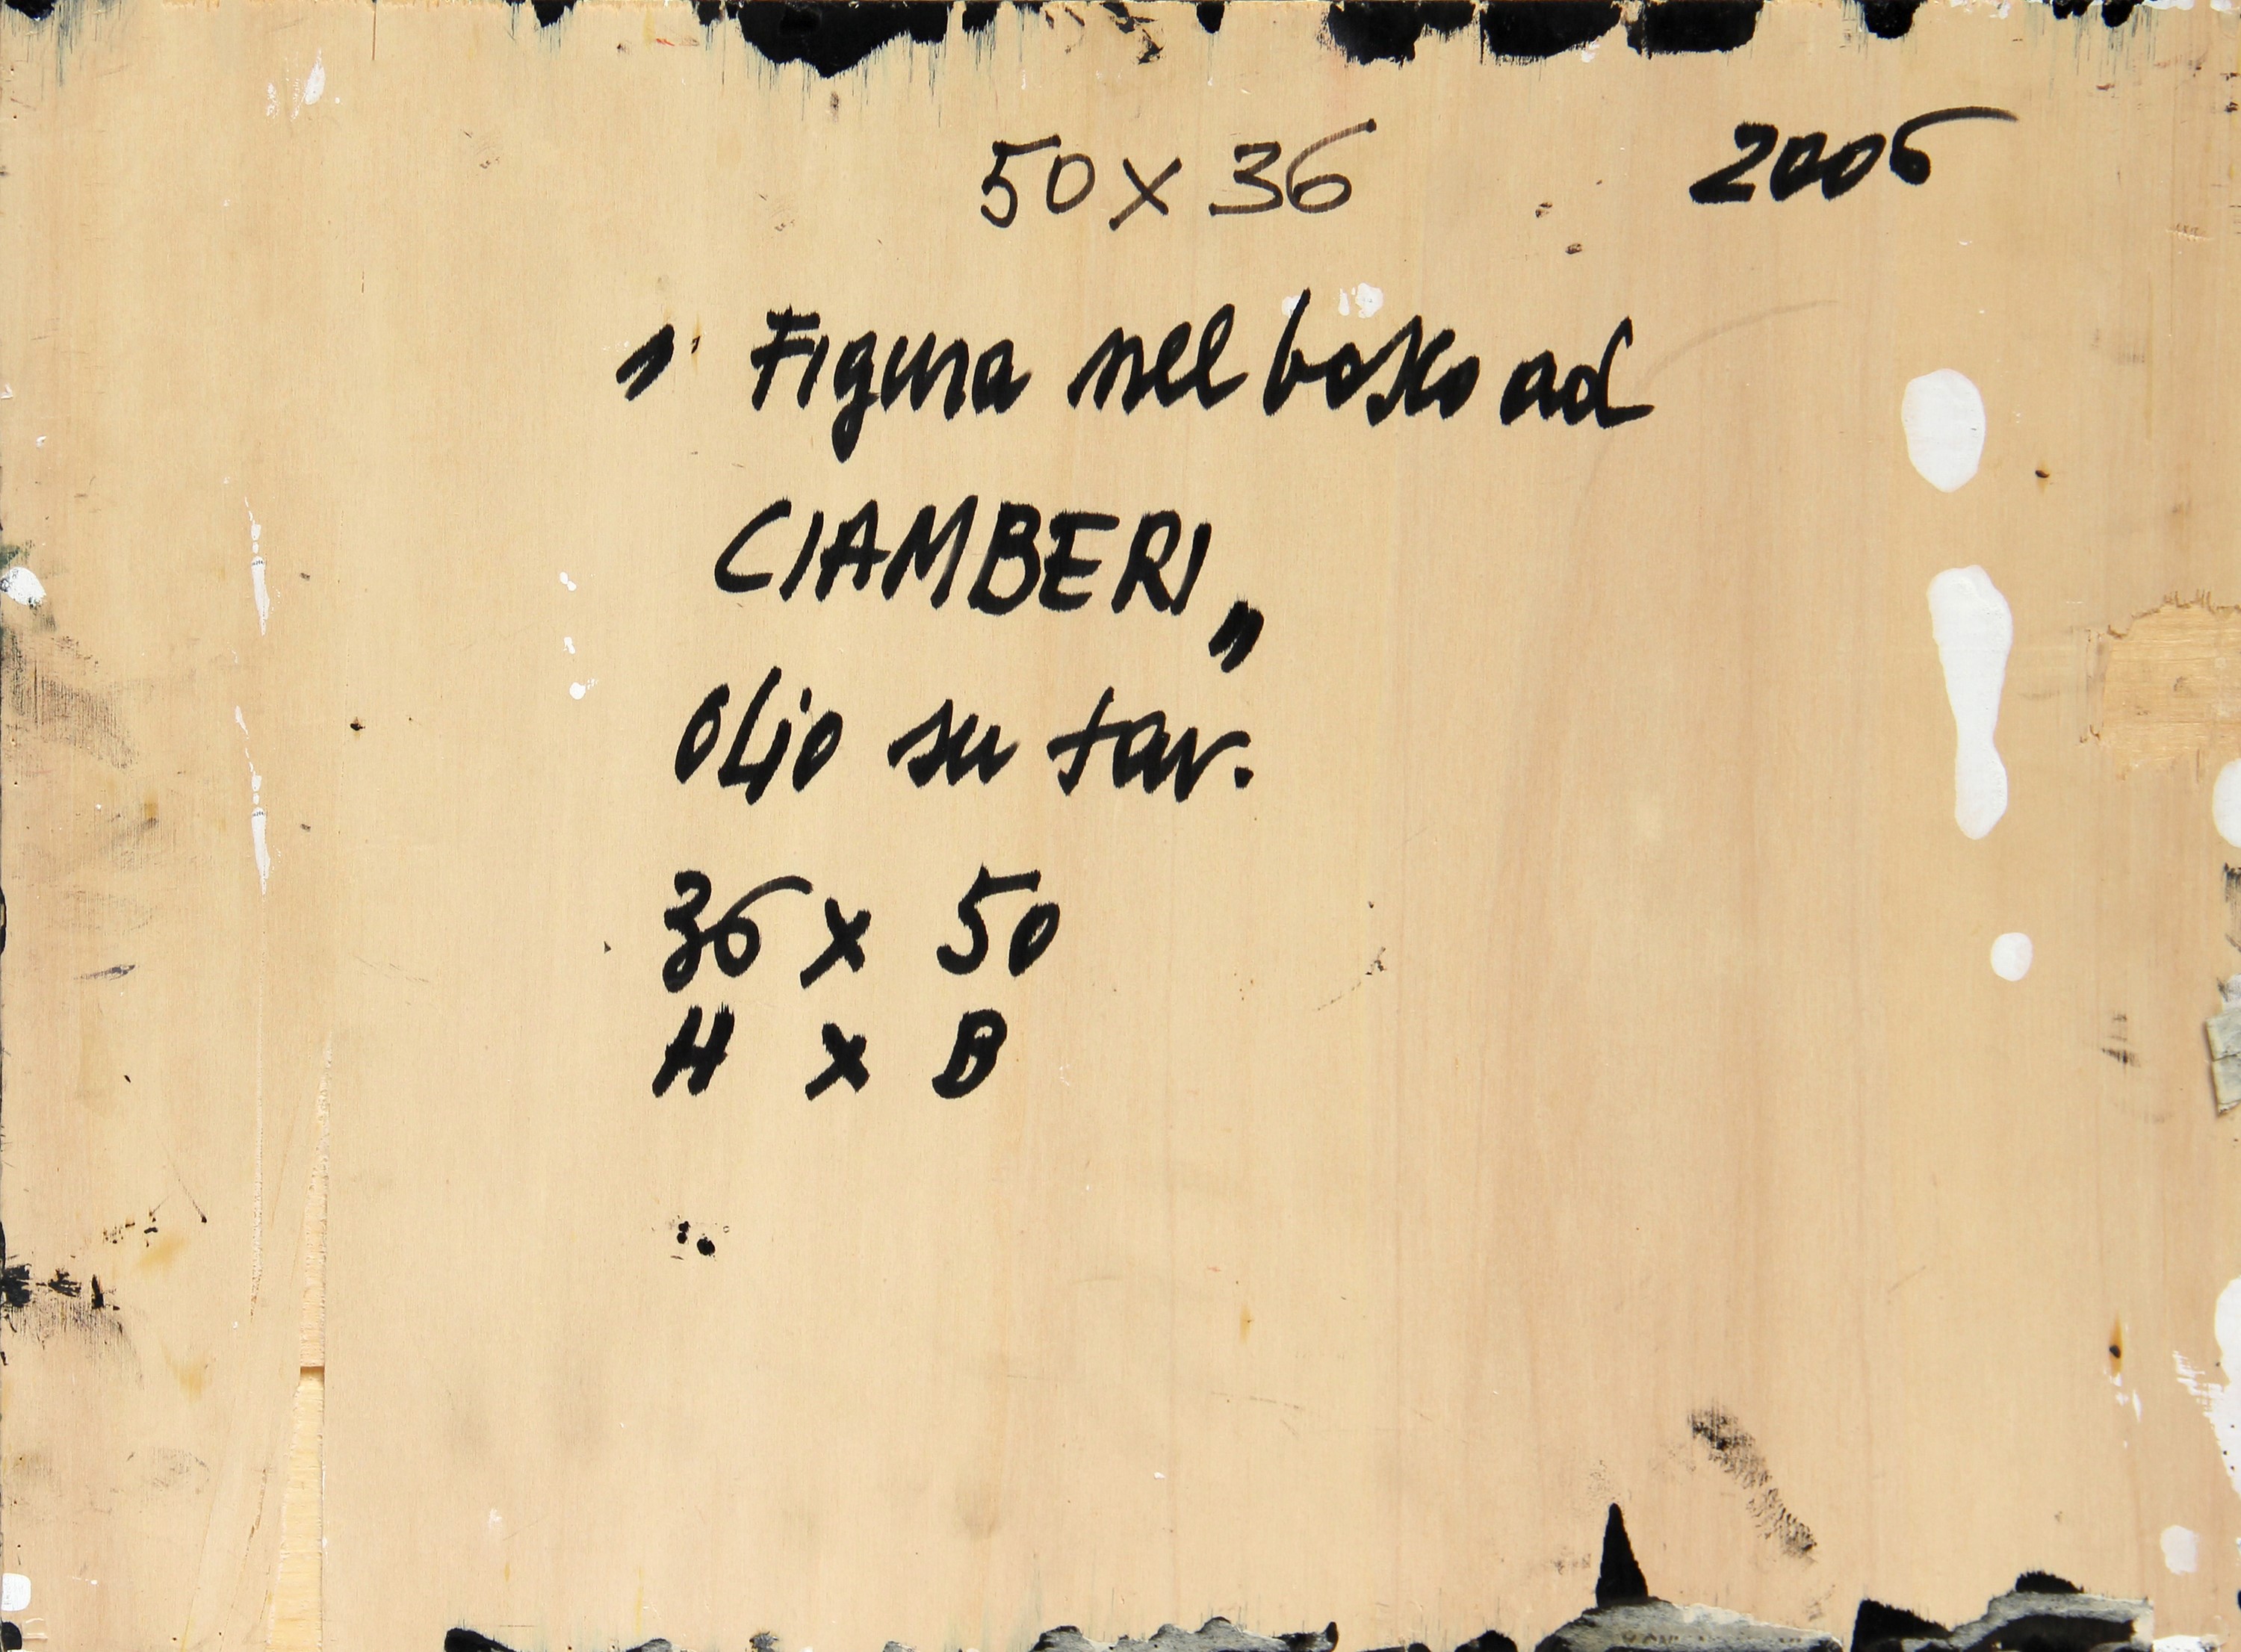 50 x 36 2006
" Figura nel bosco ad
CIAMBERI "
olio su tav.
36 x 50
H x B